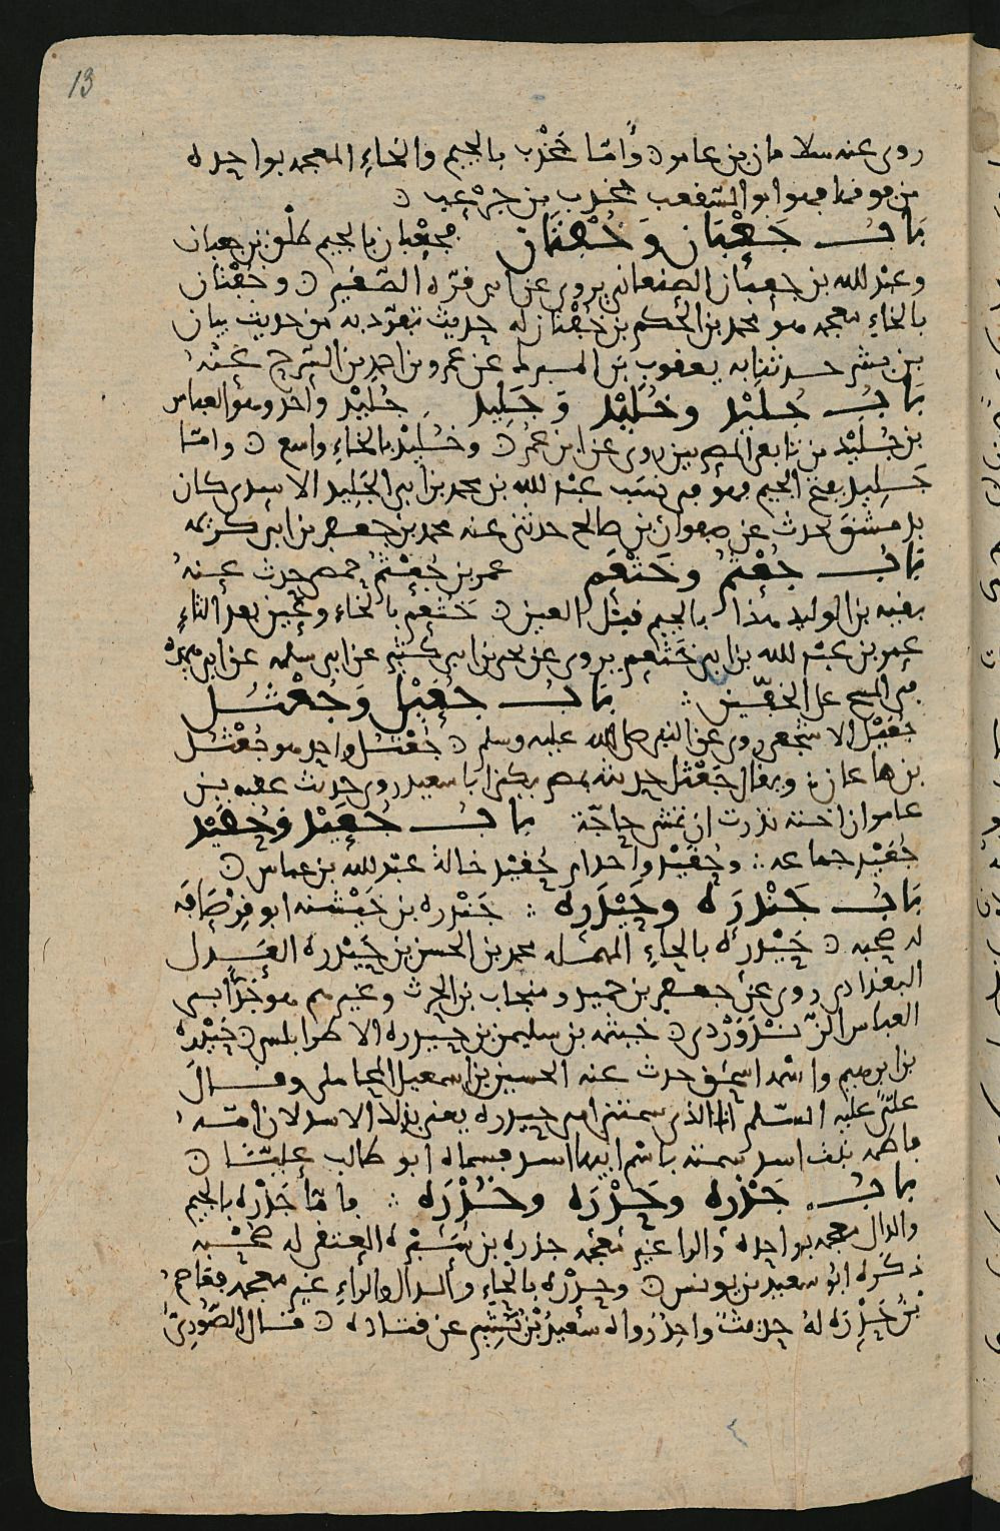 13
روى عنه سلامان بن عامر ۝ وأمّا جَخْدَب بالجيم والخاء المعجمة بواحدة
من فوقها فهو ابو الصقعب جخدب بن جرعب ۝
بَابُ جَعْبَان وَخُعْثَان فجعْبان بالجيم خلف بن جعبان
وعبد الله بن جعبان الصنعاني يروي عن ابي قرّة الصغير ۝ وخُعْثان
بالخاءِ معجمة هو محمد بن الحكم بن خعْثان له حديث تفرّد به من حديث بيان
بن بشر حدثنا به يعقوب بن المبرك عن عمرو بن احمد بن السّرح عنه
بَابُ جُلَيْد وخُلَيْد وَجَلِيد جُلَيْد واحد وهو العباس
بن جُلَيْد من تابعي المصريين روى عن ابن عمر ۝ وخُلَيْد بالخاءِ واسع ۝ وامّا
جَلِيد بفتح الجيم فهو في نسب عبد الله بن محمد بن ابي الجَلِيد الاسدي كان
بدمشق حدث عن صفوان بن صالح حدثني عنه محمد بن جعفر بن ابي كريمة
بَابُ جُعْثُم وخَثْعَم عمر بن جُعْثُم حمصي حدث عنه
بقية بن الوليد هذا بالجيم قبل العين ۝ خَثْعَم بالخاءِ وعين بعد الثاءِ
عمر بن عبد الله بن ابي خَثْعم يروي عن يحيى بن ابي كثير عن ابي سلمة عن ابي هريرة
في المسح على الخفّين ؞ بَابُ جُعَيْل وَجُعْثُل
جُعَيْل الاشجعي روى عن النبي صلى الله عليه وسلم ۝ جُعْثُل واحد هو جُعْثُل
بن هاعان ؞ ويقال جُعْثُل حديثه بمصر يكنى ابا سعيد روى حديث عقبة بن
عامر ان اخته نذرت ان تمشي حاجّة بَابُ جُعَيْد وَحُفَيْد
جُعَيْد جماعة ؞ وحُفَيْد واحد ام حُفَيْد خالة عبد الله بن عباس ۝
بَابُ جَنْدرَة وحَيْدَرة ؞ جَنْدرة بن خَيْشنة ابو قِرْصَافة
له صحبة ۝ حَيْدرة بالحاءِ المهملة محمد بن الحسن بن حَيْدرة العَدل
البغدادي روى عن جعفر بن حميد ومنجاب بن الحرث وغيرهم هو جدّ ابي
العباس الزّنْدَوَرْدي ۝ خيثمة بن سليمن بن حيدرة الاطرابلسي ۝ حَيْدرة
بن ابرهيم واسمه اسحق حدث عنه الحسين بن اسمعيل المحاملي وقال
عليٌّ عليه السّلم انا الذي سمتني امي حيدرة يعني بذلك الاسد لان امّه
فاطمة بنت اسد سمته باسم ابيها اسد فسماه ابو طالب عليًّا ۝
بَابُ جَذْرة وحَدْرَة وخُدْرَة ؞ فأمّا جَذْرة بالجيم
والذال معجمة بواحدة والرا غير معجمة جذرة بن سَبْرة العتقي له صحبة
ذكره ابو سعيد بن يونس ۝ وحِدْرَة بالحاءِ والدال والراءِ غير معجمة
بن حَدْرَة لهُ حديث واحد رواه سعيد بن بشير عن قتادة ۝ قال الصّوري